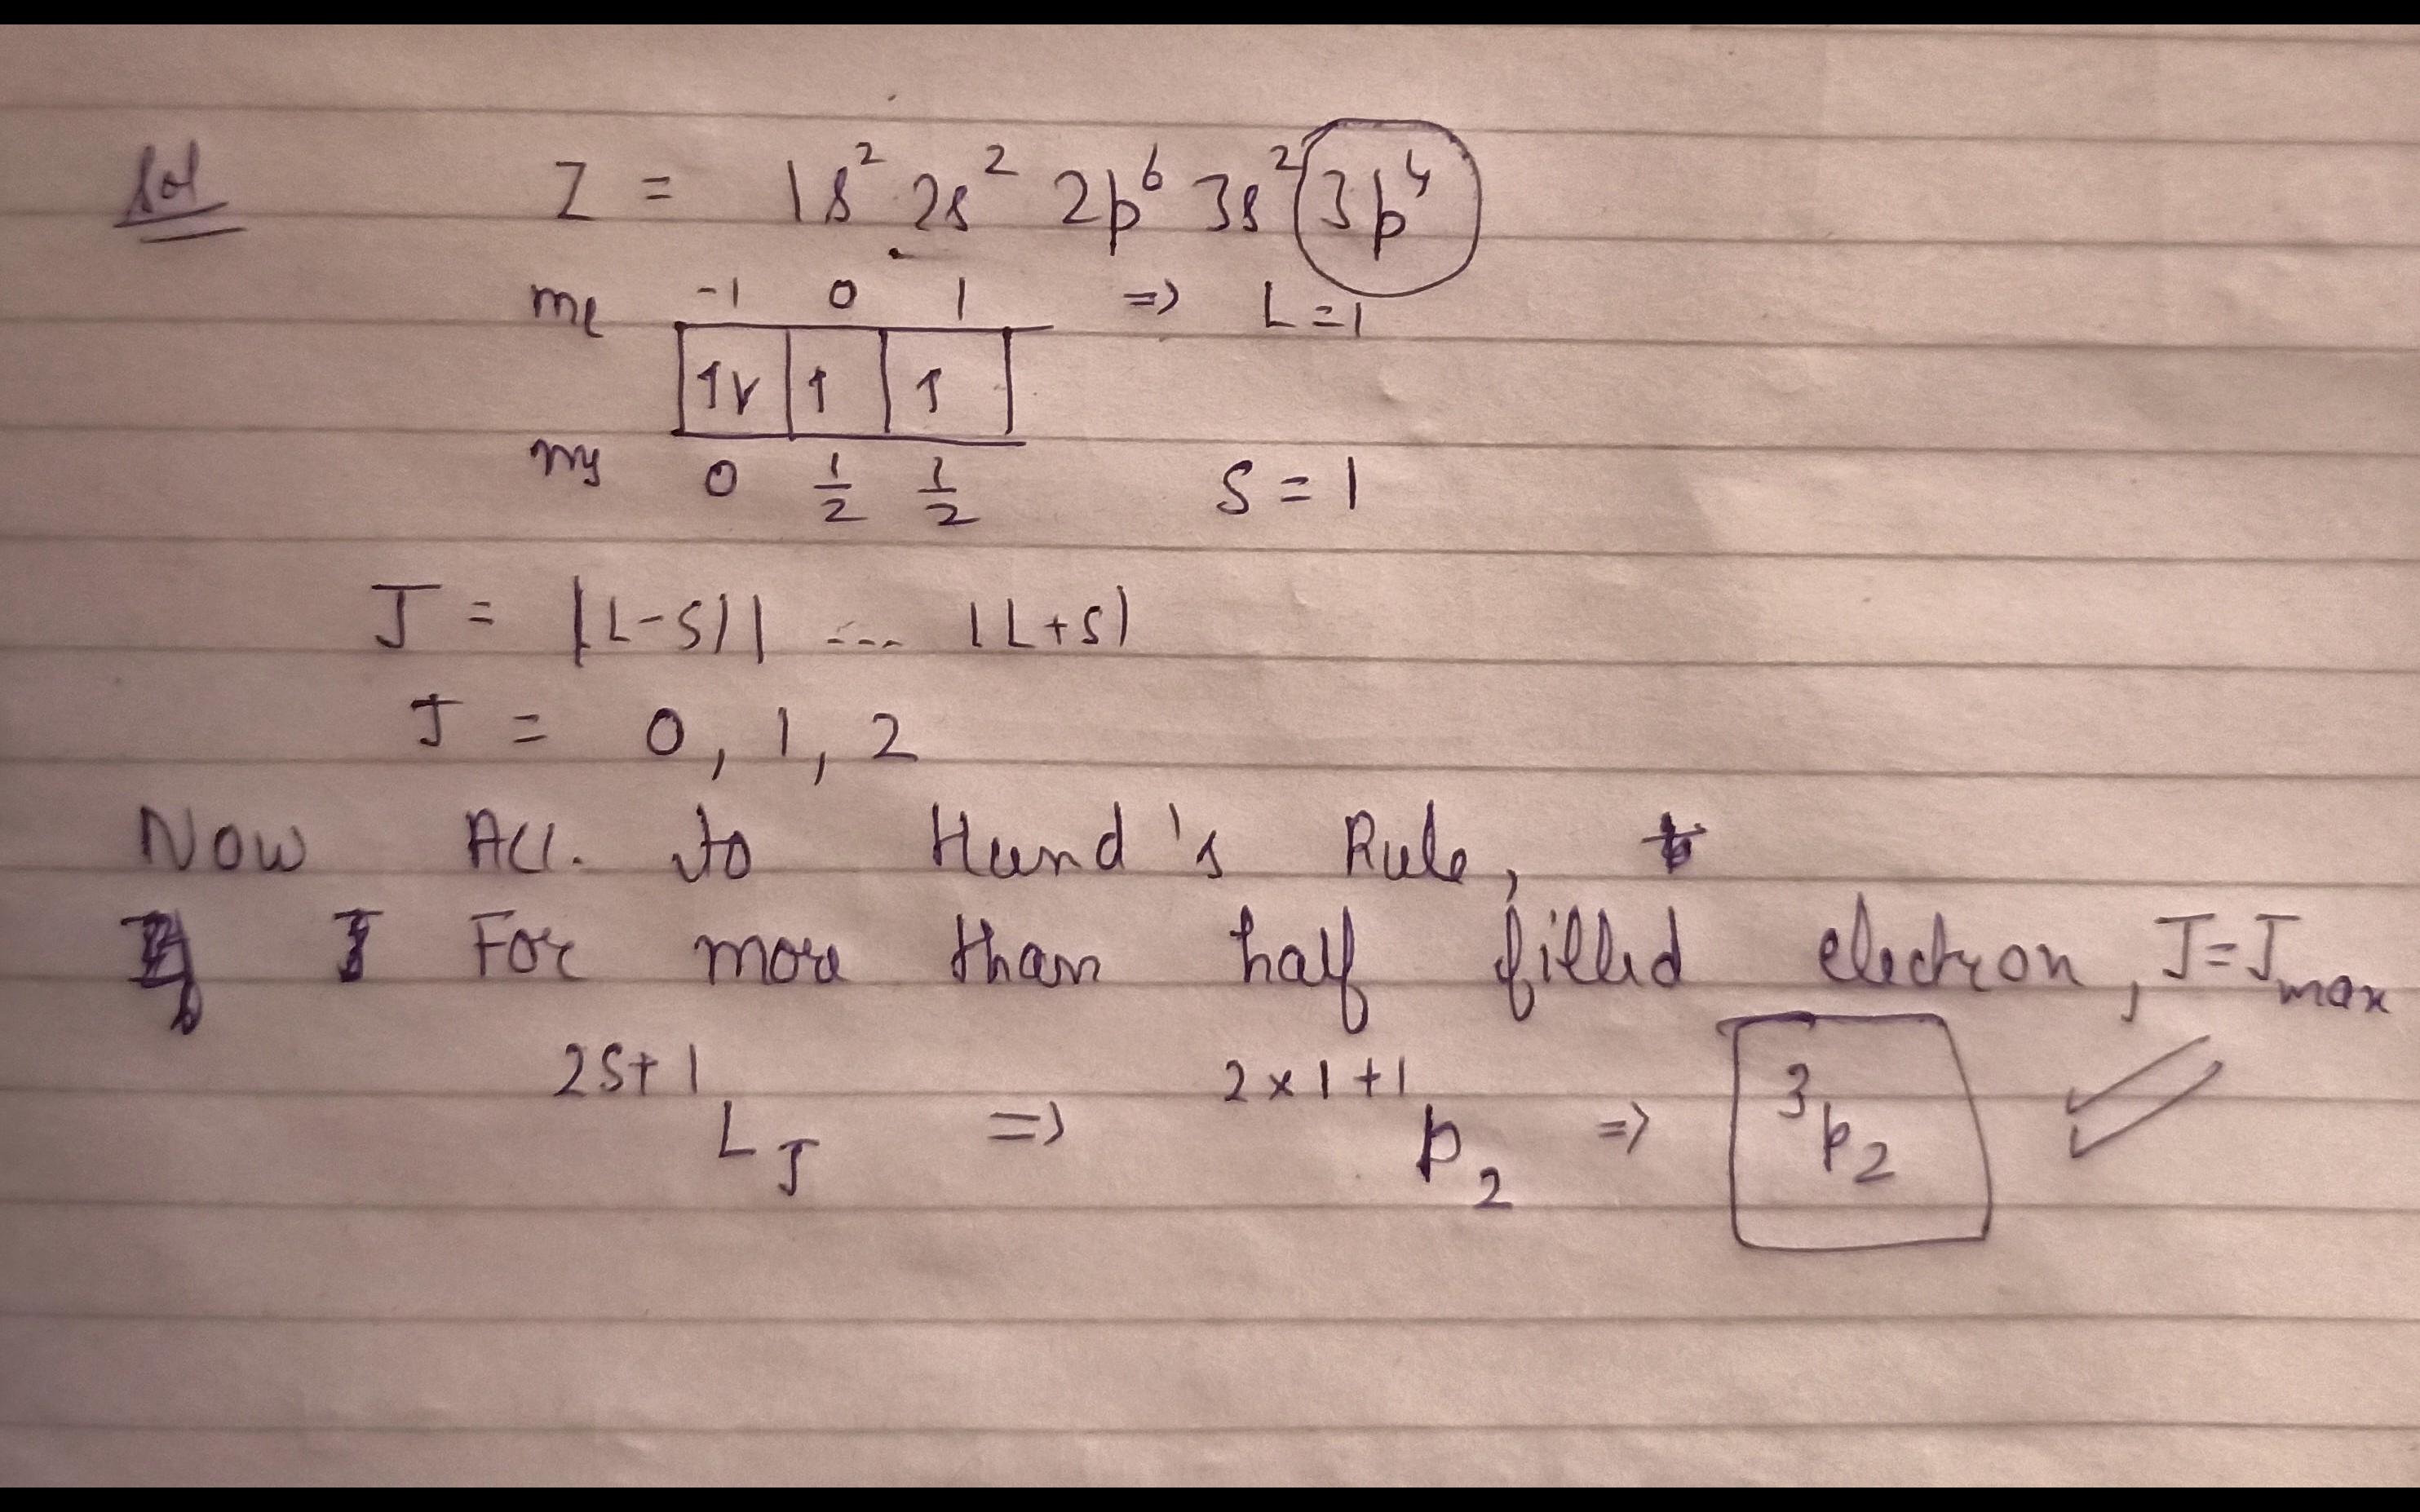 Sol Z = 1s² 2s² 2p⁶ 3s² 3p⁴
mₗ -1 0 1 => L = 1
1v 1 1
ms 0 1/2 1/2 S = 1
J = |L-S)| .... |L+S)
J = 0, 1, 2
Now Acc. to Hund's Rule,
For more than half filled electron, J = Jmax
2S+1 L J => 2×1+1 p 2 => ³p₂